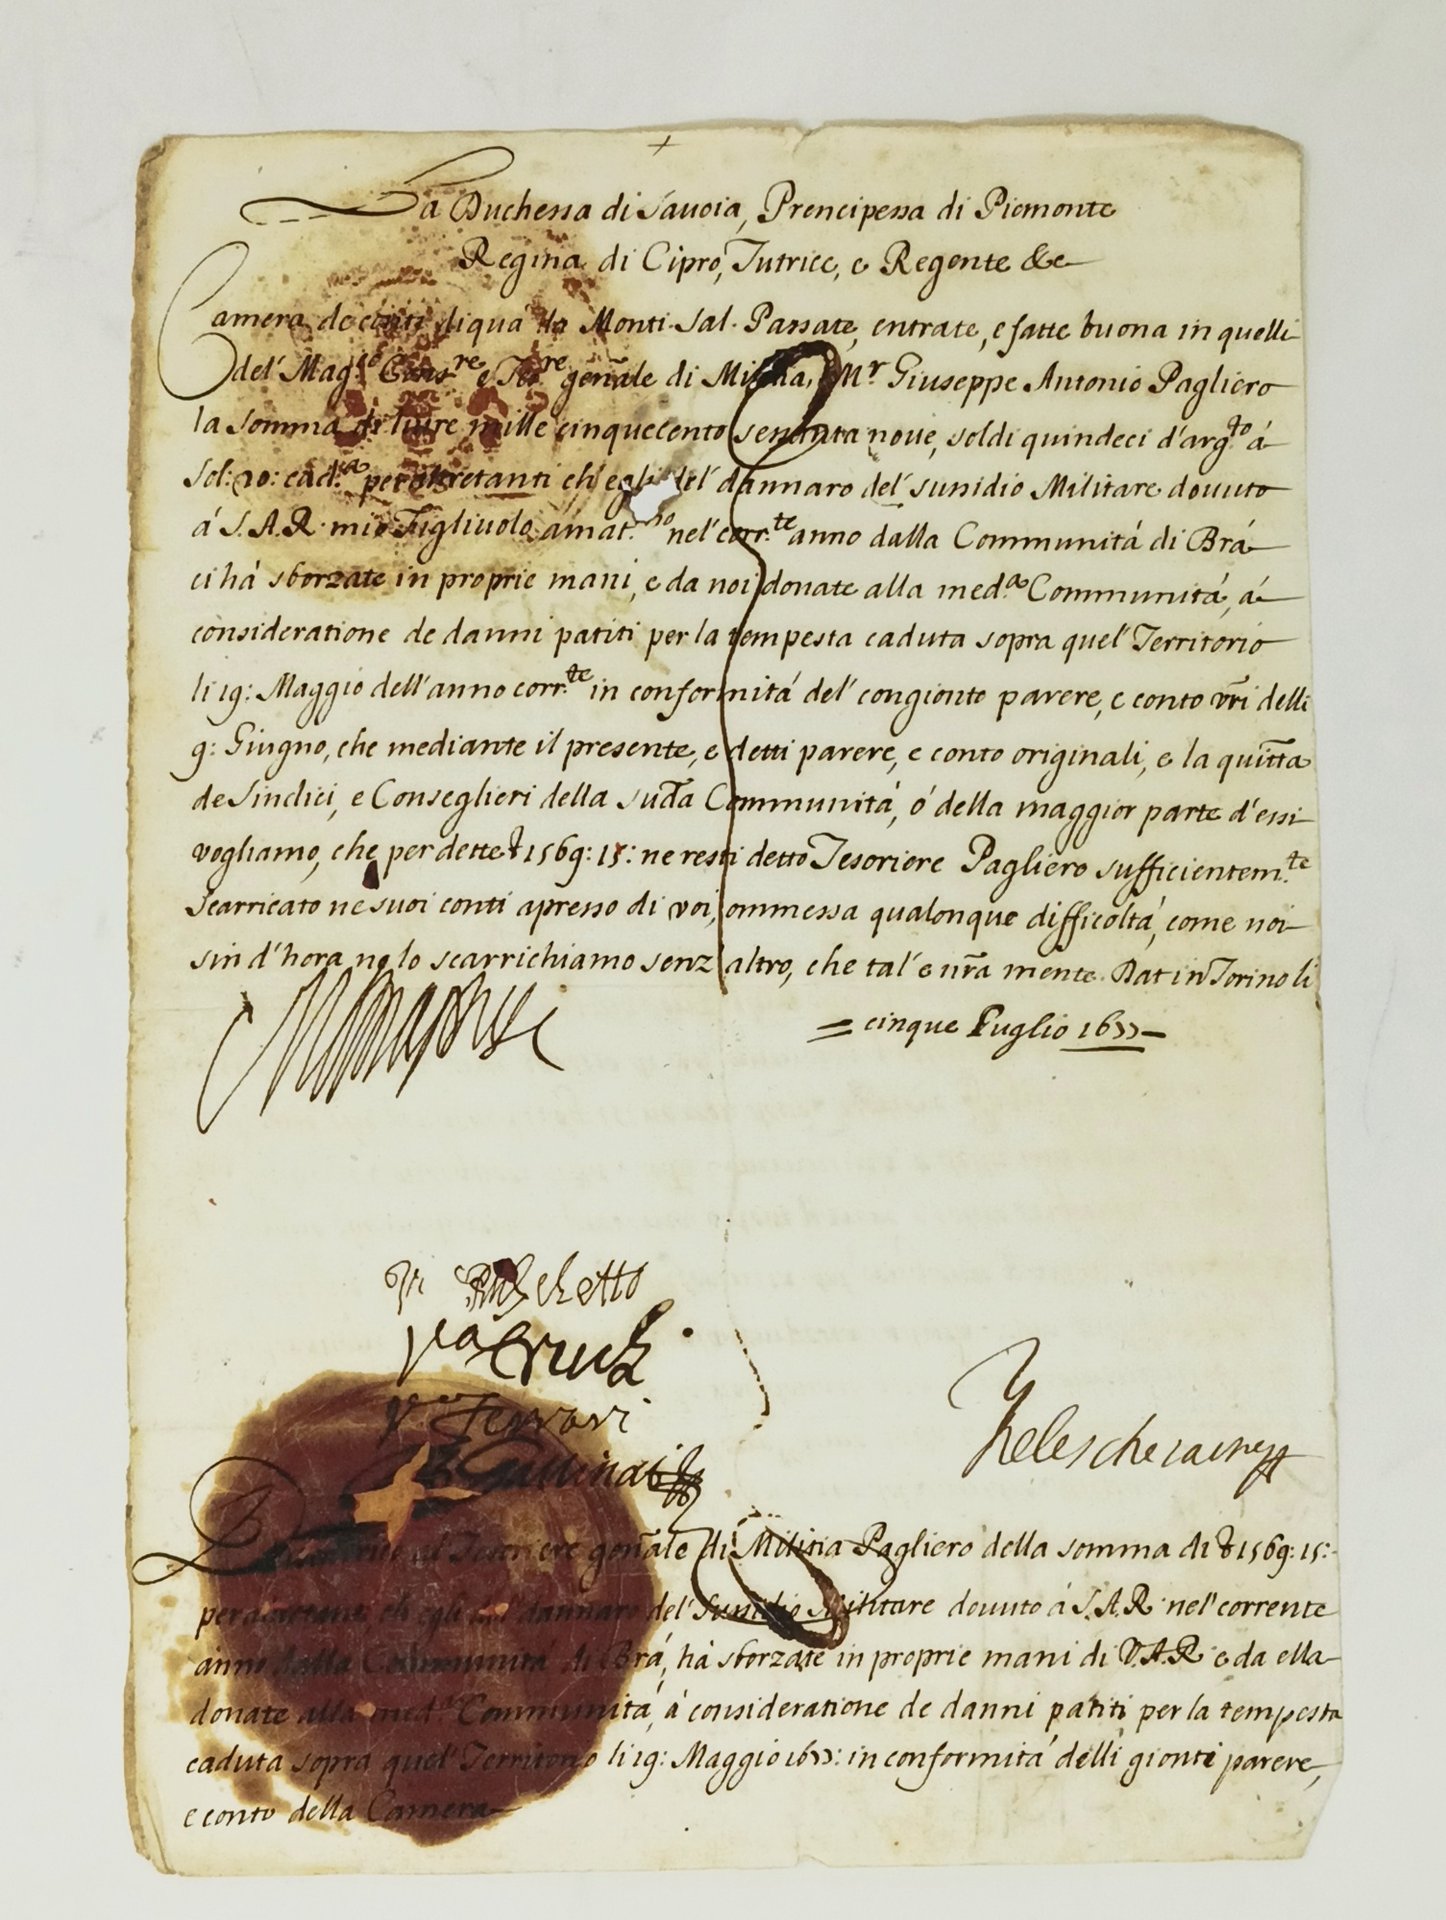 La Duchessa di Sauoia, Prencipessa di Piemonte
Regina di Cipro, Tutrice, e Regente &c
Camera de conti Monti. Sal. Passate, entrate, e fatte buona in quelli
del' Mag.co e genãle di Militia, Mr Giuseppe Antonio Pagliero
la somma di liure mille cinquecento sessanta noue, soldi quindeci d'arg.to á
Sol: 20: cad.a per altretanti ch'egli del' dannaro del' sussidio Militare douuto
á S. A. R. mio Figliuolo amat.mo nel' corr.te anno dalla Communitá di Brá
ci há sborzate in proprie mani, e da noi donate alla med.a Communitá, á
consideratione de danni patiti per la tempesta caduta sopra quel' Territorio
li 19: Maggio dell'anno corr.te in conformitá del' congionto parere, e conto vr̃i delli
9: Giugno, che mediante il presente, e detti parere, e conto originali, e la quitt̃a
de Sindici, e Conseglieri della sud̃a Communitá, ó della maggior parte d'essi
vogliamo, che per dette 1569: 15: ne resti detto Tesoriere Pagliero sufficientem.te
scarricato ne suoi conti apresso di voi, ommessa qualonque difficoltá, come noi
sin d'hora ne lo scarrichiamo senz'altro, che tal' e nr̃a mente. Dat in Torino li
= cinque Luglio 1677
Va Ferrari
al Tesoriere genãle di Militia Pagliero della somma di 1569: 15:
per altretanti ch'egli del dannaro del' Sussidio Militare douuto á S. A. R. nel' corrente
anno dalla Communitá di Brá, há sborzate in proprie mani di V. A. R. e da ella
donate alla med.a Communitá, á consideratione de danni patiti per la tempesta
caduta sopra quel' Territorio li 19: Maggio 1677: in conformitá delli gionti parere,
e conto della Camera